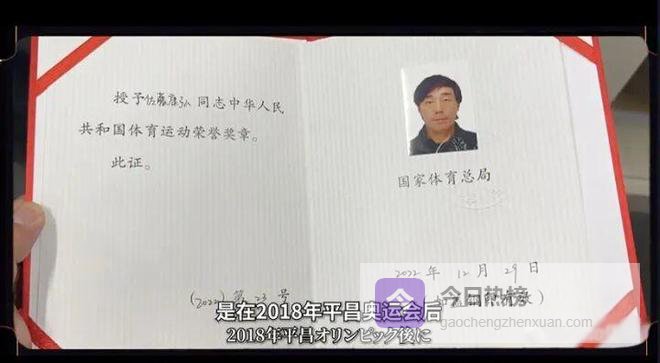 授予佐藤康弘同志中华人民
共和国体育运动荣誉奖章。
此证。
(2022)第23号
国家体育总局
2022年12月29日
是在2018年平昌奥运会后
2018年平昌オリンピック後に
今日热榜
gaochengzhenxuan.com